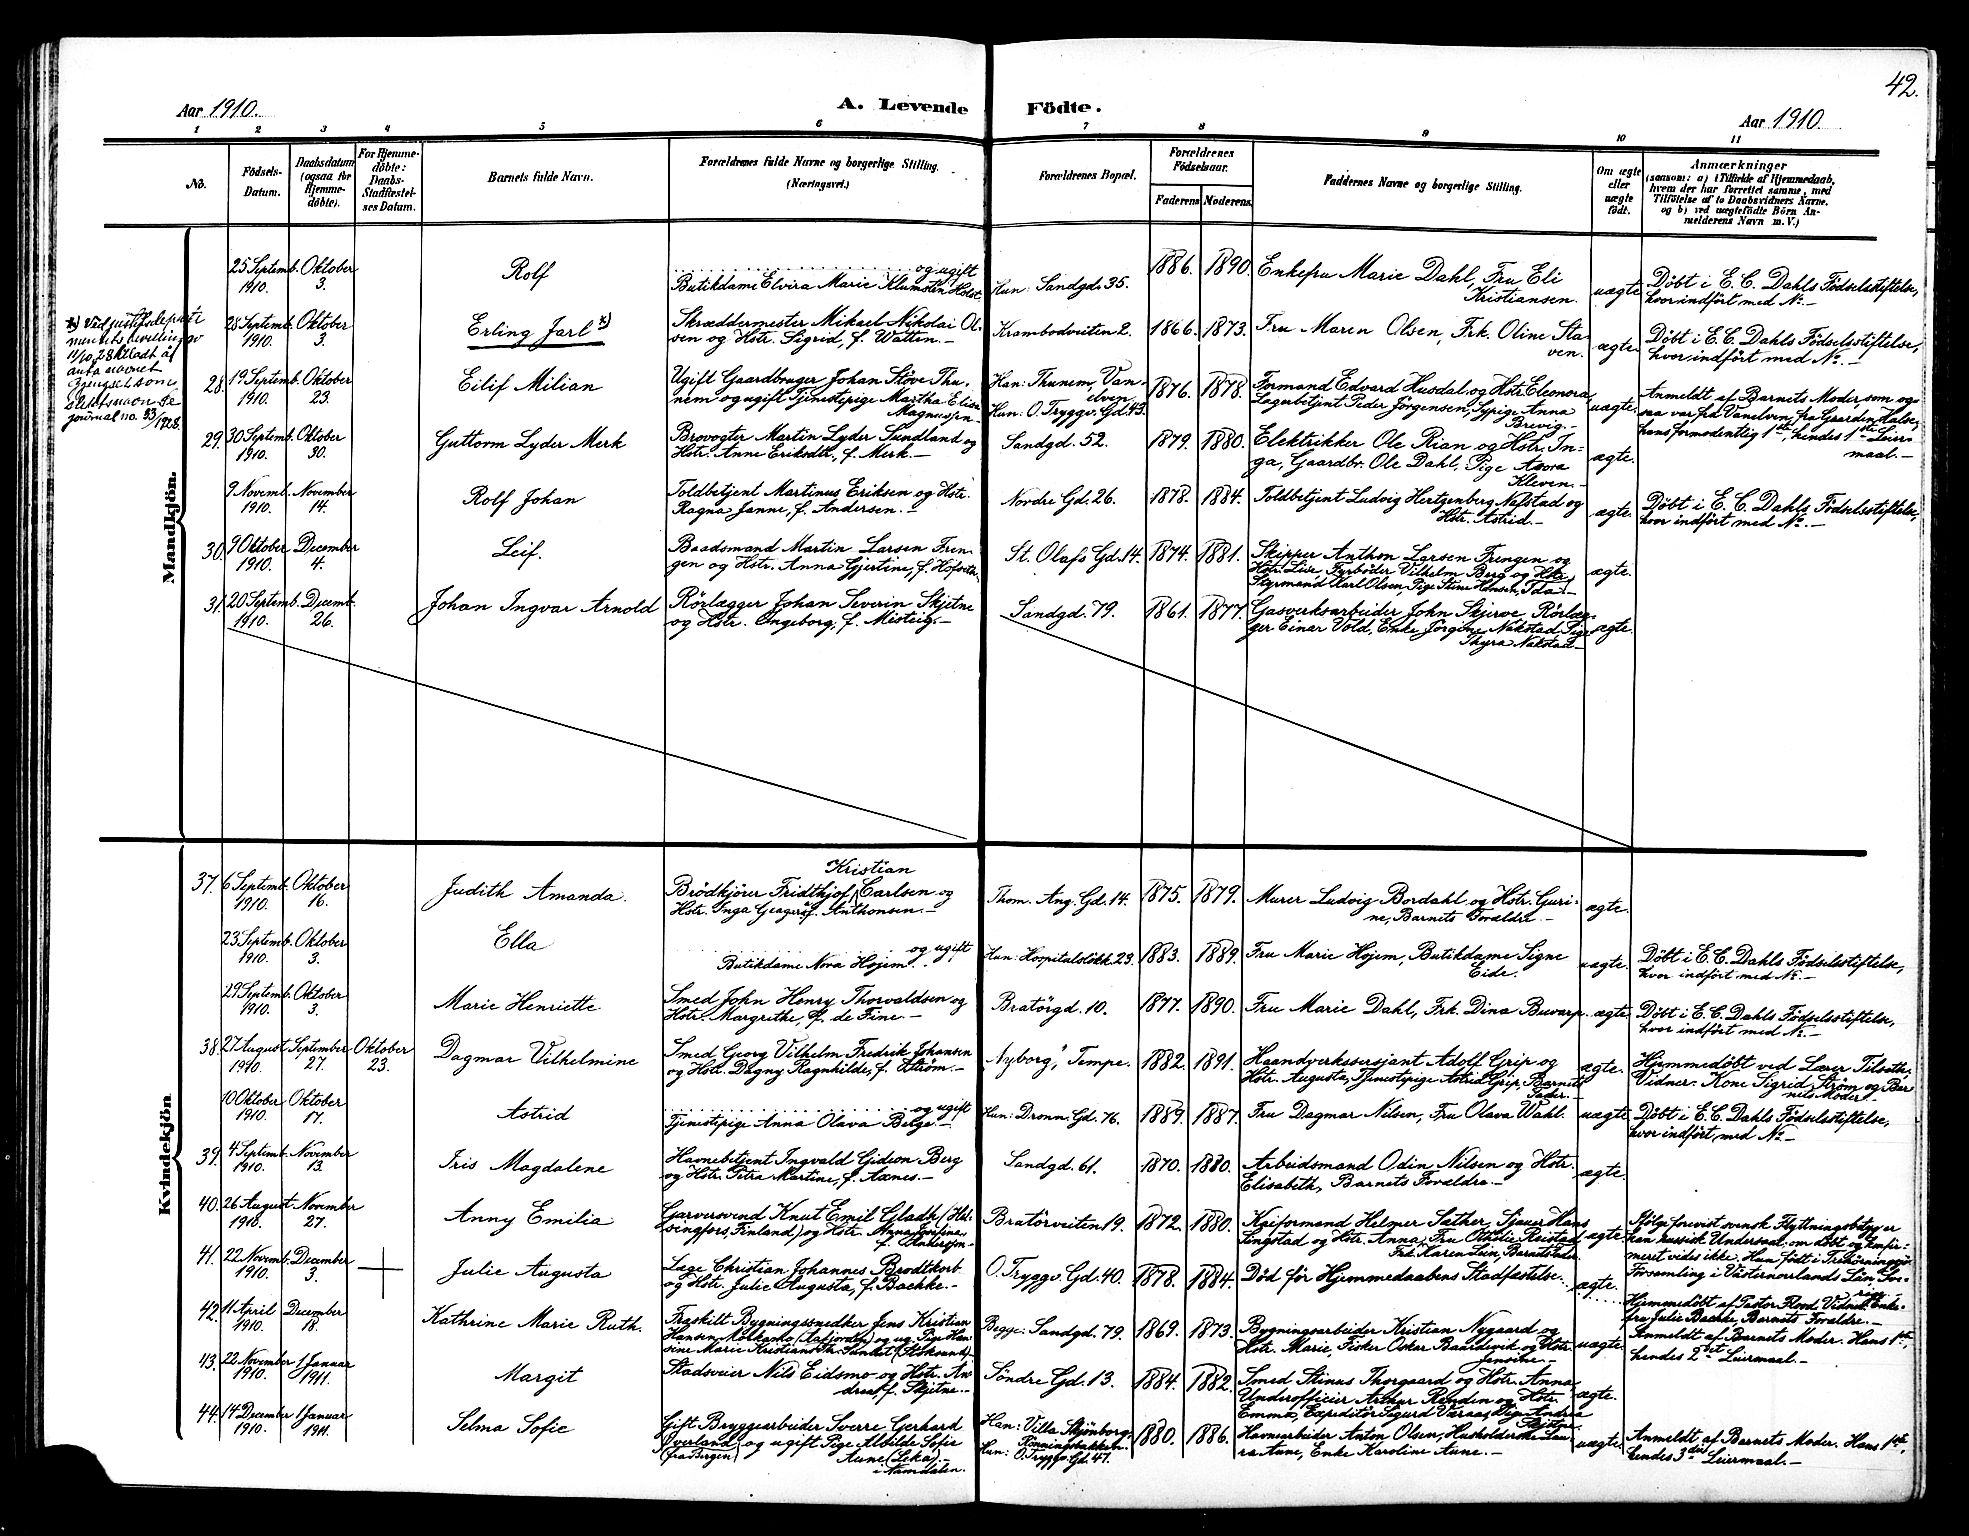 42.
Aar 1910.
A. Levende
Födte.
Aar 1910
1 2 3 4 5 6 7 8 9 10 11
No.
Födsels-
Datum.
Daabsdatum
(ogsaa for
Hjemme-
döbte).
For Hjemme-
döbte:
Daabs-
Stadfæstel-
ses Datum.
Barnets fulde Navn.
Forældrenes fulde Navne og borgerlige Stilling.
(Næringsvei.)
Forældrenes Bopæl.
Forældrenes
Födselsaar.
Faderens Moderens
Faddernes Navne og borgerlige Stilling.
Om ægte
eller
uægte
födt.
Anmærkninger
(saasom: a) i Tilfælde af Hjemmedaab,
hvem der har forrettet samme, med
Tilföielse af to Daabsvidners Navne,
og b) ved uægtefödte Börn An-
melderens Navn m. V.)
Mandkjön.
25 Septemb. Oktober
1910. 3.
Rolf
og ugift
Butikdame Elvira Marie Klumsten Holst
Hun: Sandgd. 35.
1886. 1890.
Enkefru Marie Dahl, Fru Eli
Kristiansen.
uægte
Döbt i E. C. Dahls Födselsstiftelse,
hvor indført med No. —
x) Ved justisdeparte
mentets bevilling av
11/10 28 tillodt at
anta navnet
som
slektsnavn se
journal no. 53/1928.
28 Septemb. Oktober
1910. 3.
Erling Jarl x)
Skræddermester Mikael Nikolai Ol-
sen og Hstr. Sigrid, f. Watten. —
Krambodveiten 2.
1866. 1873.
Fru Maren Olsen, Frk. Oline Sta-
ven.
ægte.
Döbt i E. C. Dahls Födselsstiftelse,
hvor indført med No. —
28. 19 Septemb. Oktober
1910. 23.
Eilif Milian
Ugift Gaardbruger Johan Støve Thu-
nem og ugift Tjenestepige Martha Elise
Magnussen.
Han: Thunem, Van-
elven
Hun: O. Tryggv. Gd. 43.
1876. 1878.
Formand Edvard Husdal og Hstr. Eleonora
Lagerbetjent Peder Jörgensen, Sypige Anna
Brevig. —
uægte.
Anmeldt af Barnets Moder som og-
saa var fra Vanelven, fra Gaarden Halse,
hans formodentlig 1ste, hendes 1ste Leier-
maal. —
29. 30 Septemb. Oktober
1910. 30.
Guttorm Lyder Merk
Brovogter Martin Lyder Sundland og
Hstr. Anne Eriksdtr., f. Merk. —
Sandgd. 52.
1879. 1880.
Elektrikker Ole Rian og Hstr. In-
ga, Gaardbr. Ole Dahl, Pige Aasra
Kleven. —
ægte.
9 Novemb. November
1910. 14.
Rolf Johan
Toldbetjent Martinus Eriksen og Hstr.
Ragna Janne, f. Andersen. —
Nordre Gd. 26.
1878. 1884.
Toldbetjent Ludvig Hertzenberg Nafstad og
Hstr. Astrid. —
ægte.
Döbt i E. C. Dahls Födselsstiftelse,
hvor indført med No. —
30. 9 Oktober December
1910. 4.
Leif.
Baadsmand Martin Larsen Fren-
gen og Hstr. Anna Gjertine, f. Hofseth.
St. Olafs Gd. 14.
1874. 1881.
Skipper Anthon Larsen Frengen og
Hstr. Lise, Fyrböder Vilhelm Berg og Hstr.
Styrmand Karl Olsen, Pige Stine Hansen, Ida. —
ægte.
31. 20 Septemb. Decemb.
1910. 26.
Johan Ingvar Arnold
Rörlægger Johan Severin Skjetne
og Hstr. Ingeborg, f. Misteig. —
Sandgd. 79.
1861. 1877.
Gasverksarbeider John Skjerve, Rörlæg-
ger Einar Vold, Enke Jörgine Nakstad, Pige
Thyra Nakstad —
ægte.
Kvindekjön
37. 6 Septemb. Oktober
1910. 16.
Judith Amanda.
Kristian
Brödkjörer Fridthjof Carlsen og
Hstr. Inga Georgea, f. Anthonsen. —
Thom. Ang. Gd. 14.
1875. 1879.
Murer Ludvig Bordahl og Hstr. Guri-
ne, Barnets Forældre. —
ægte.
23. Septemb. Oktober
1910. 3.
Ella
og ugift
Butikdame Nora Höjem.
Hun: Hospitalslökk. 23.
1883. 1889.
Fru Marie Höjem, Butikdame Signe
Eide.
uægte.
Döbt i E. C. Dahls Födselsstiftelse,
hvor indført med No. —
29 Septemb. Oktober
1910. 3.
Marie Henriette
Smed John Henry Thorvaldsen og
Hstr. Margrethe, f. de Fine. —
Bratörgd. 10.
1877. 1890.
Fru Marie Dahl, Frk. Dina Buvarp.
ægte.
Döbt i E. C. Dahls Födselsstiftelse,
hvor indført med No. —
38. 27 August September Oktober
1910. 27. 23.
Dagmar Vilhelmine
Smed Georg Vilhelm Fredrik Johansen
og Hstr. Dagny Ragnhilde, f. Ström. —
"Nyborg", Tempe.
1882. 1891.
Haandverkssersjant Adolf Grip og
Hstr. Augusta, Tjenestepige Astrid Grip, Barnets
Fader. —
ægte.
Hjemmedöbt ved Lærer Tilseth,
Vidner: Kone Sigrid Ström og Bar
nets Moder. —
10 Oktober Oktober
1910. 17.
Astrid
og ugift
Tjenestepige Anna Olava Belge. —
Hun: Dronn. Gd. 76.
1889. 1887.
Fru Dagmar Nilsen, Fru Olava Wahl.
uægte
Döbt i E. C. Dahls Födselsstiftelse,
hvor indført med No —
39. 4 Septemb. November
1910. 13.
Iris Magdalene
Havnebetjent Ingvald Gideon Berg
og Hstr. Petra Martine, f. Aanes. —
Sandgd. 61.
1870. 1880.
Arbeidsmand Odin Nilsen og Hstr.
Elisabeth, Barnets Forældre. —
ægte.
40. 26 August November
1910. 27.
Anny Emilia
Garversvend Knut Emil Gladh (Hel-
singfors, Finland) og Hstr. Anna Josefina,
f. Andersson —
Bratörveiten 19.
1872. 1880.
Kaiformand Helmer Sæther, Sjauer Hans
Lingstad og Hstr. Anna, Fru Othilie Reistad,
Frk. Karen Lein, Barnets Fader.
ægte.
Ifölge forevist svensk Flyttningsbetyg er
han russisk Undersaat, om döbt og konfir-
meret vides ikke. Hun födt i
Forsamling i Västernorrlands Län, Sve-
rige.
41. 22 Novemb. December
1910. 3.
Julie Augusta
Læge Christian Johannes Brodtkorb
og Hstr. Julie Augusta, f. Bachke. —
O. Tryggv. Gd. 40.
1878. 1884.
Död för Hjemmedaabens Stadfæstelse.
ægte.
Hjemmedöbt af Pastor Flood. Vidner: Enke-
fru Julie Bachke, Barnets Forældre. —
42. 11 April December
1910. 18.
Kathrine Marie Ruth.
Fraskilt Bygningssnedker Jens Kristian
Hansen Molkamo (Aafjorden) og ug. Pige Han-
sine Marie Kristiansdtr. Sundet (Stoksund). —
Begge: Sandgd. 79.
1869. 1873.
Bygningsarbeider Kristian Nygaard og
Hstr. Marie, Fisker Oskar Baardsvik og Hstr.
Jensine. —
uægte.
Anmeldt af Barnets Moder. Hans 1ste,
hendes 2det Leiermaal. —
43. 22 November 1 Januar
1910. 1911.
Margit
Stadsveier Nils Eidsmo og Hstr. An-
drea, f. Skjetne. —
Söndre Gd. 13.
1884. 1882.
Smed Stinus Thorgaard og Hstr. Anna,
Underofficier Arthur Rendin og Hstr.
Emma, Expeditör Sigurd Varaas, Pige Andrea
Skjetne —
ægte.
44. 14 December 1 Januar
1910. 1911.
Selma Sofie
Gift Bryggearbeider Sverre Gerhard
Overland og ugift Pige Albilde Sofie
(fra Bergen) Aune (Leka). —
i Namdalen.
Han: Villa Skjönborg,
Rönningsbakken
Hun: O. Tryggv. Gd. 41.
1880. 1886.
Havnearbeider Anton Olsen, Husholderske Lau-
ra Aune, Enke Karoline Aune. —
uægte.
Anmeldt af Barnets Moder. Hans 1ste,
hendes 3die Leiermaal. —